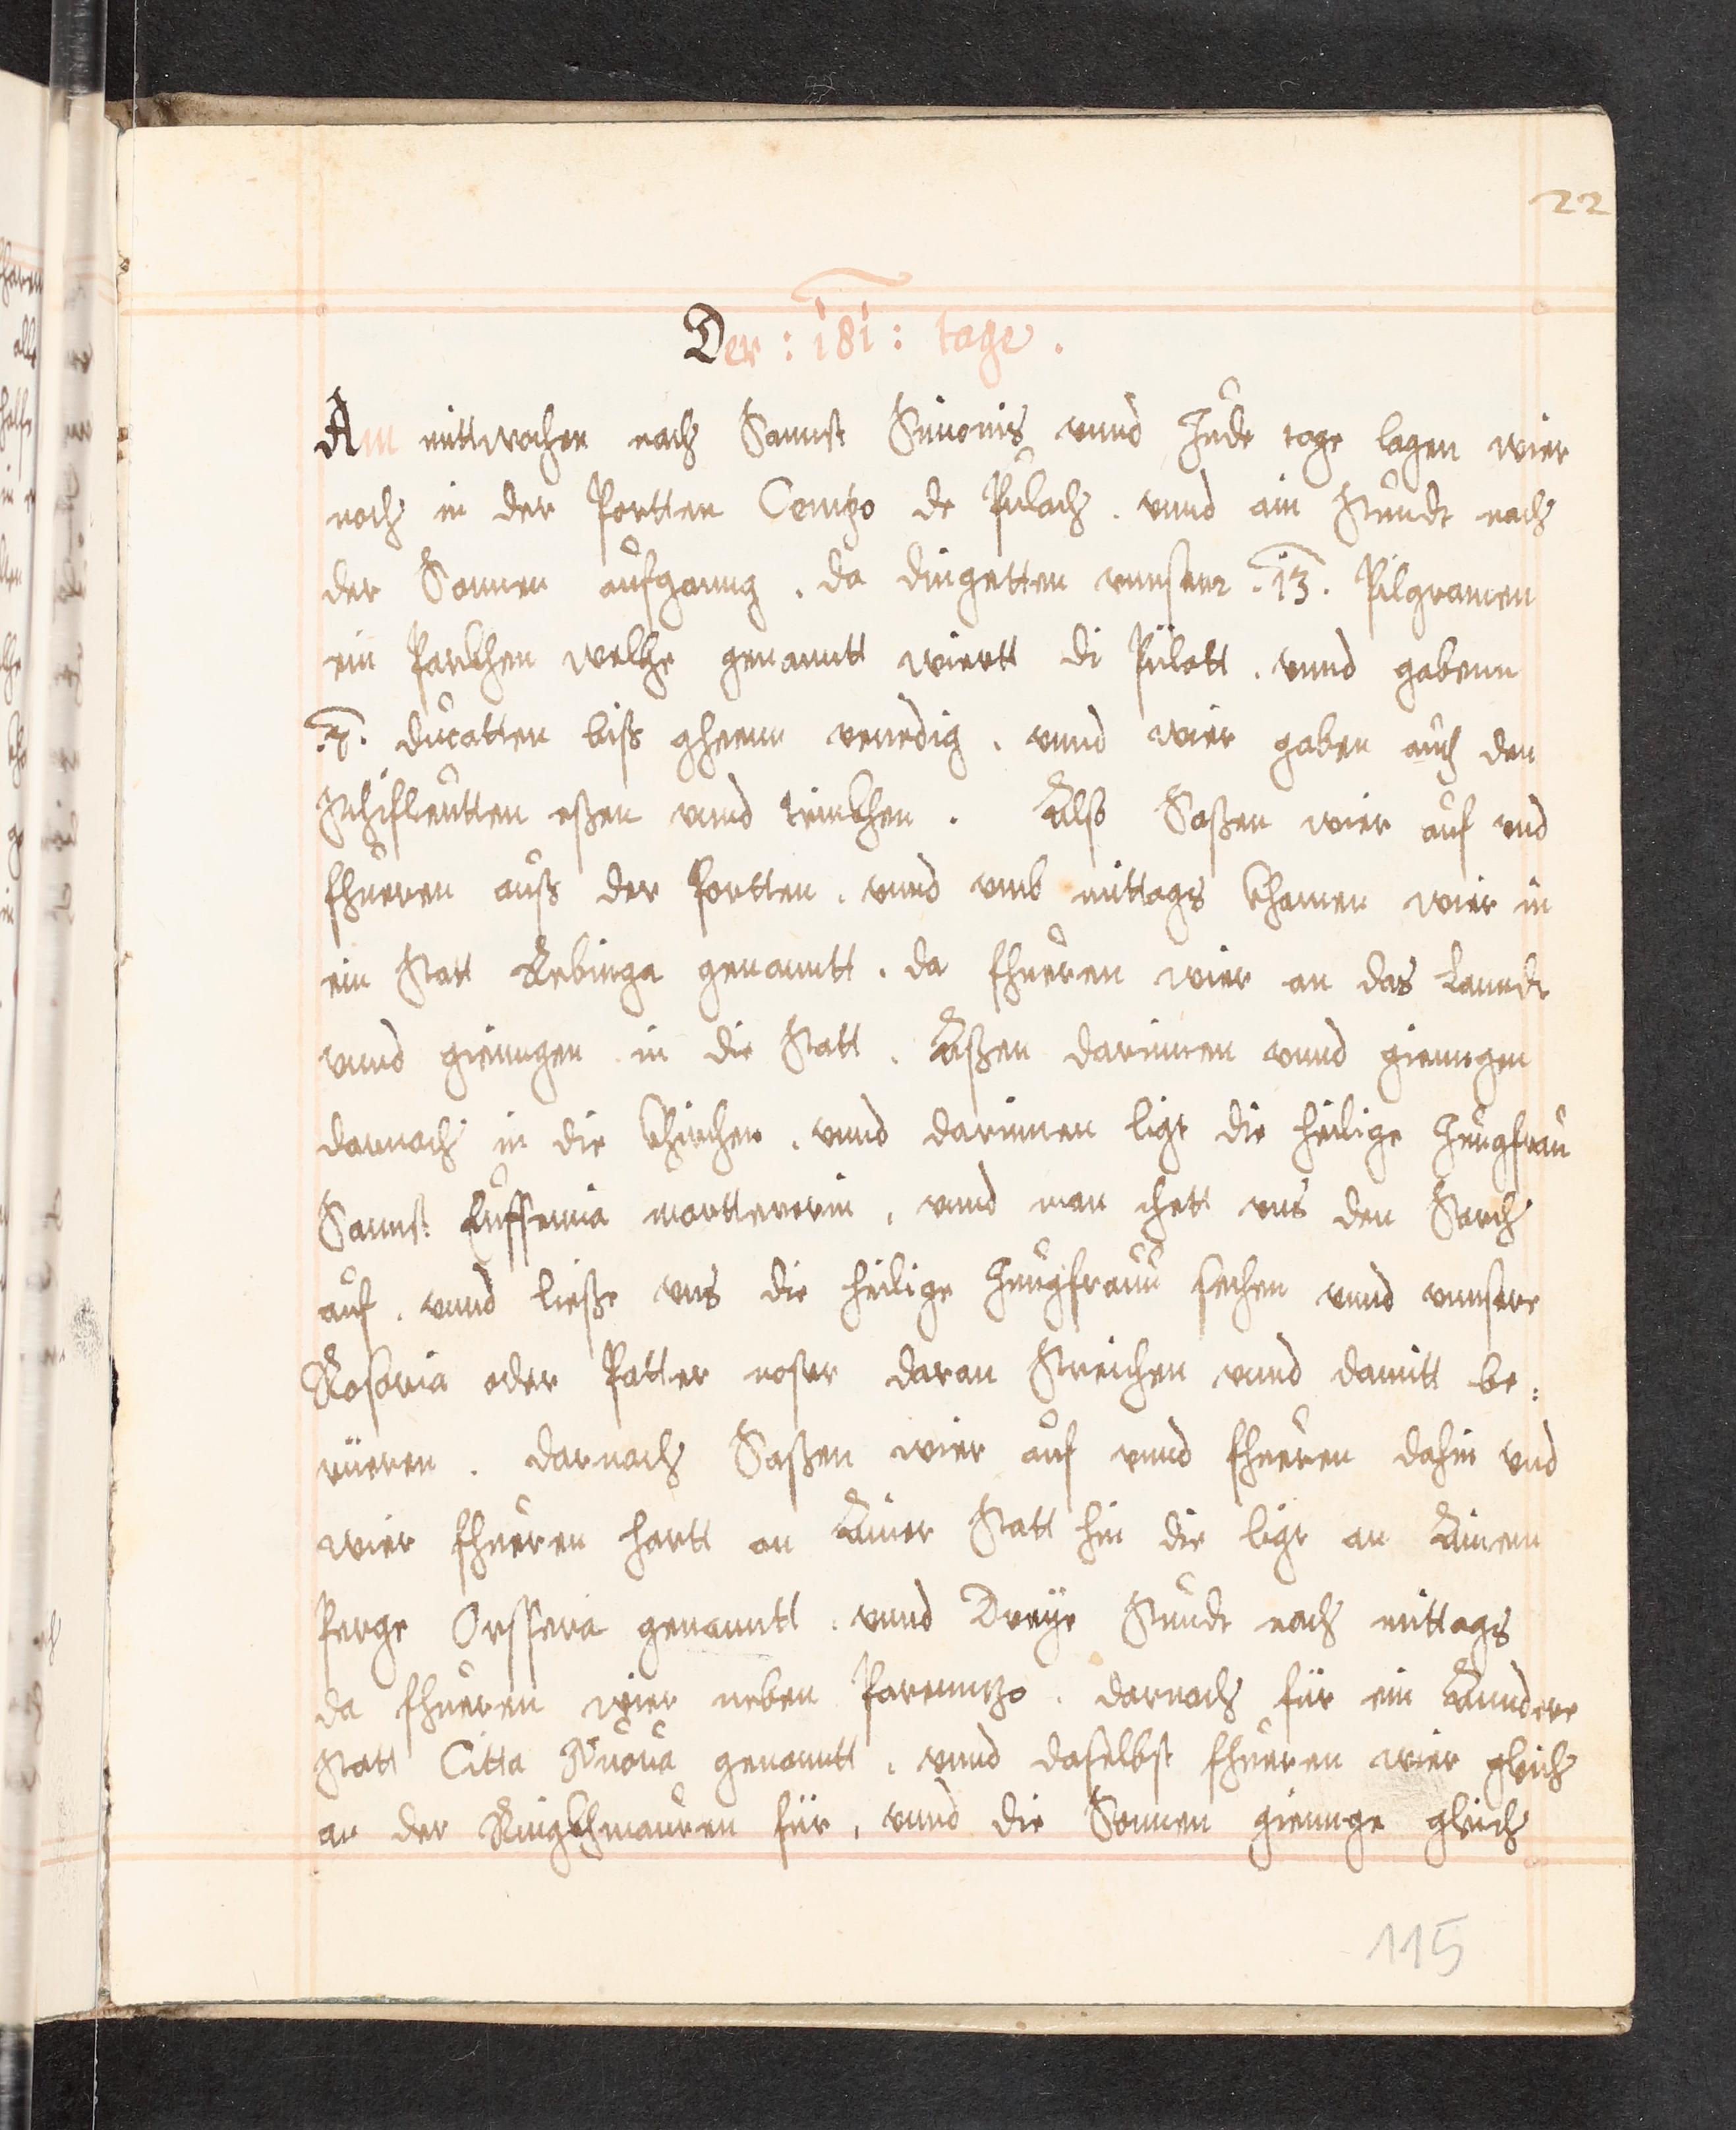 22
Der : 181 : tage .
Am mittwochen nach Sannct Simonis vnnd Jude tage lagen wier
noch in der Portten Contzo de Pulach . vnnd ain Stundt nach
der Sonnen aufganng . da dingetten vnnserr .13. Pilgramen
ein Parckhen welche genanntt wiertt di Pülatt . vnnd gabenn
.7. ducatten biß gehenn venedig . vnnd wier gaben auch den
Schifleutten eßen vnnd trinckhen . Alß Saßen wier auf vnd
fhueren auß der Portten . vnnd vmb mittags khamen wier in
ein Statt Rebinga genanntt . da fhueren wier an das Lanndt
vnnd giemngen in die Statt . Aßen darinnen vnnd giemngen
darnach in die khirchen . vnnd darinnen ligt die heilige Jungfrau
Sannct Euffemia martterorin , vnnd man thett vns den Sarch
auf . vnnd ließe vns die heilige Jungfrauu sechen vnnd vnnsere
Rosaria oder Patter noster daran Streichen vnnd damitt be:
rüeren . darnach Saßen wier auf vnnd fhueren dahin vnd
wier fhueren hartt an Ainer Statt hin die ligt an Ainem
Perge Orssera genanntt . vnnd Dreye Stundt nach mittags
da fhueren wier neben Parenntzo . darnach für ein Anndere
Statt Citta Nuoua genanntt , vnnd daselbst fhueren wier gleich
an der Ringkhmauren für , vnnd die Sonnen giennge gleich
115